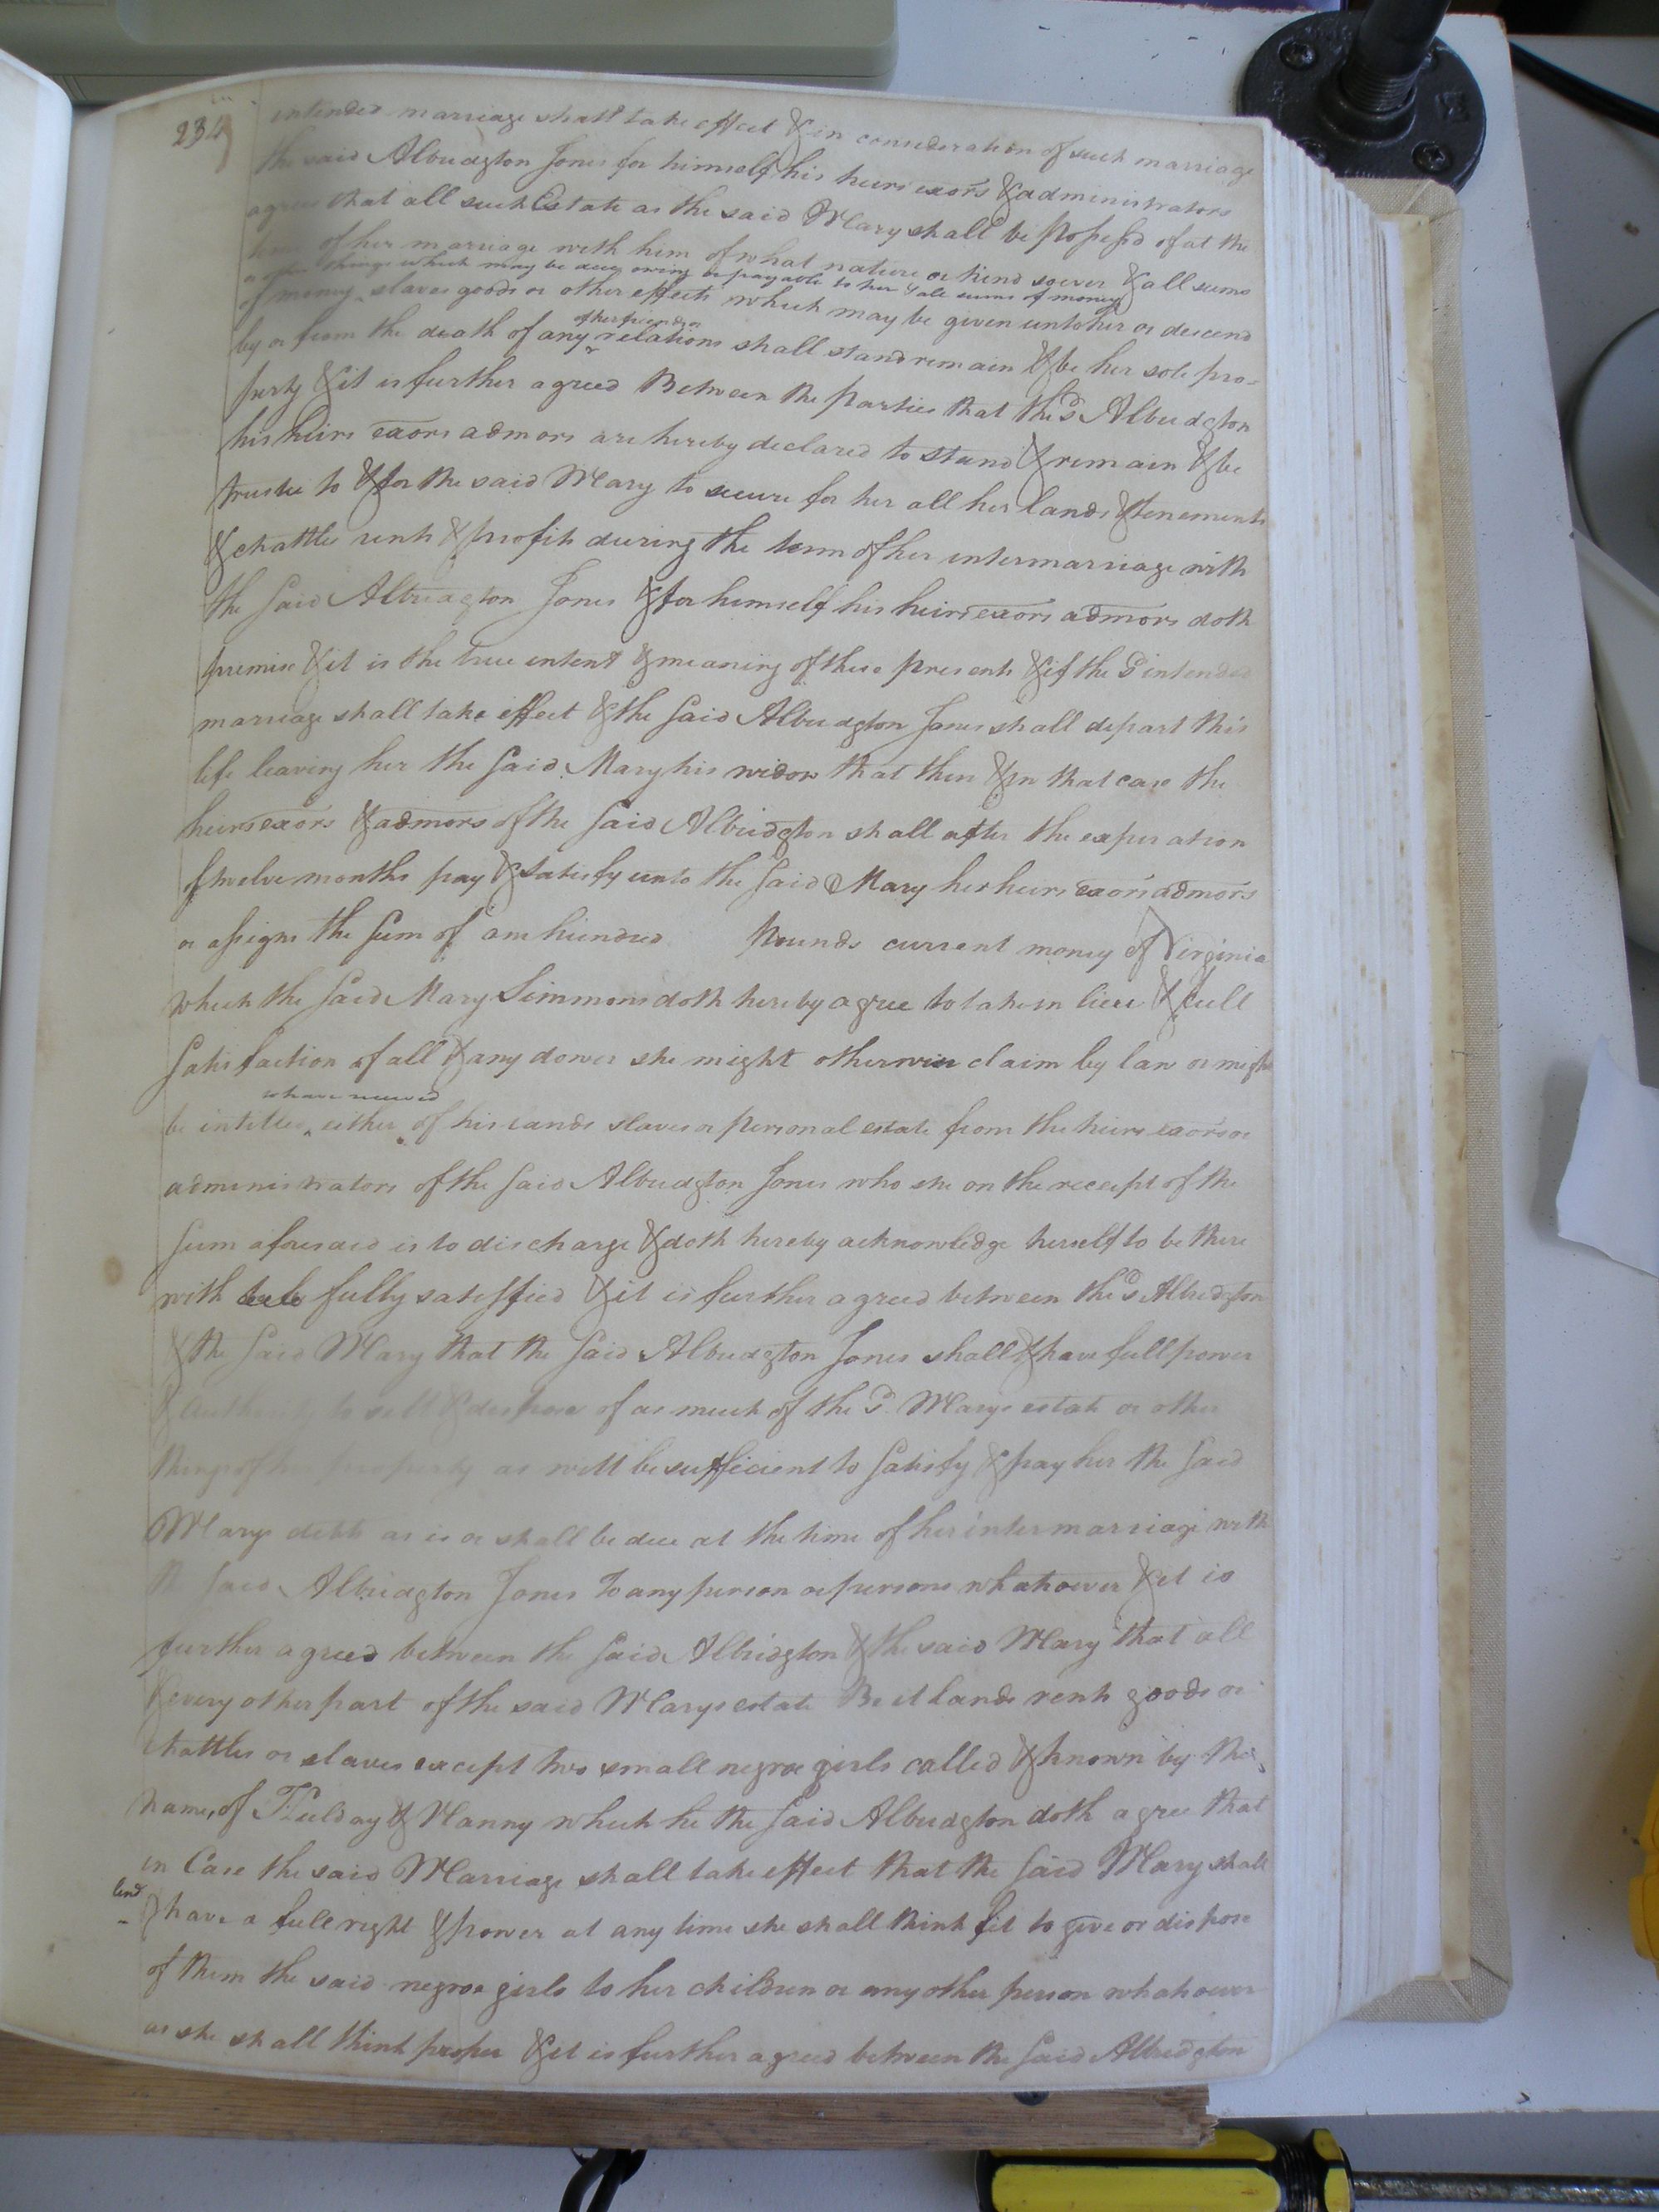 234
intended marriage shall take effect & in consideration of such marriage
the said Albridgton Jones for himself his heirs exors & administrators
agrees that all such Estate as the said Mary shall be possessd of at the
time of her marriage with him of what nature or kind soever & all sums
things which may be due owing or payable to her & all sums of money
of money slaves goods or other effects which may be given unto her or descend
of her friends or
by or from the death of any relations shall stand remain & be her sole pro-
perty & it is further agreed Between the parties that the sd Albridgton
his heirs exors admors are hereby declared to stand & remain & be
trustee to & for the said Mary to secure for her all her lands & tenements
& chattles rents & profits during the term of her intermarriage with
the said Albridgton Jones & for himself his heirs exors admors doth
premise & it is the true intent & meaning of these presents & if the sd intended
marriage shall take effect & the said Albridgton Jones shall depart this
life leaving her the said Mary his widow that then & in that case the
heirs exors & admors of the said Albridgton shall after the expiration
of twelve months pay & satisfy unto the said Mary her heirs exors admors
or assigns the sum of one hundred pounds current money of Virginia
which the said Mary Simmons doth hereby agree to take in lieu & full
satisfaction of all & any dower she might otherwise claim by law or might
be intitled either of his lands slaves or personal estate from the heirs exors or
administrators of the said Albridgton Jones who she on the receipt of the
sum aforesaid is to discharge & doth hereby acknowledge herself to be there
with fully satisffied & it is further agreed between the sd Albridgton
& the said Mary that the said Albridgton Jones shall & have full power
& authority to sell & dispose of as much of the sd Marys estate or other
things of her property as will be sufficient to satisfy & pay her the said
Marys debts as is or shall be due at the time of her intermarriage with
the said Albridgton Jones To any person or persons whatsoever & it is
further agreed between the said Albridgton & the said Mary that all
& every other part of the said Marys estate Be it lands rents goods or
chattles or slaves except two small negroe girls called & known by the
names of & Nanny which he the said Albridgton doth agree that
in Case the said Marriage shall take effect that the said Mary shall
& have a full right & power at any time she shall think fit to give or dispose
of them the said negroe girls to her children or any other person whatsoever
as she shall think proper & it is further agreed between the said Albridgton